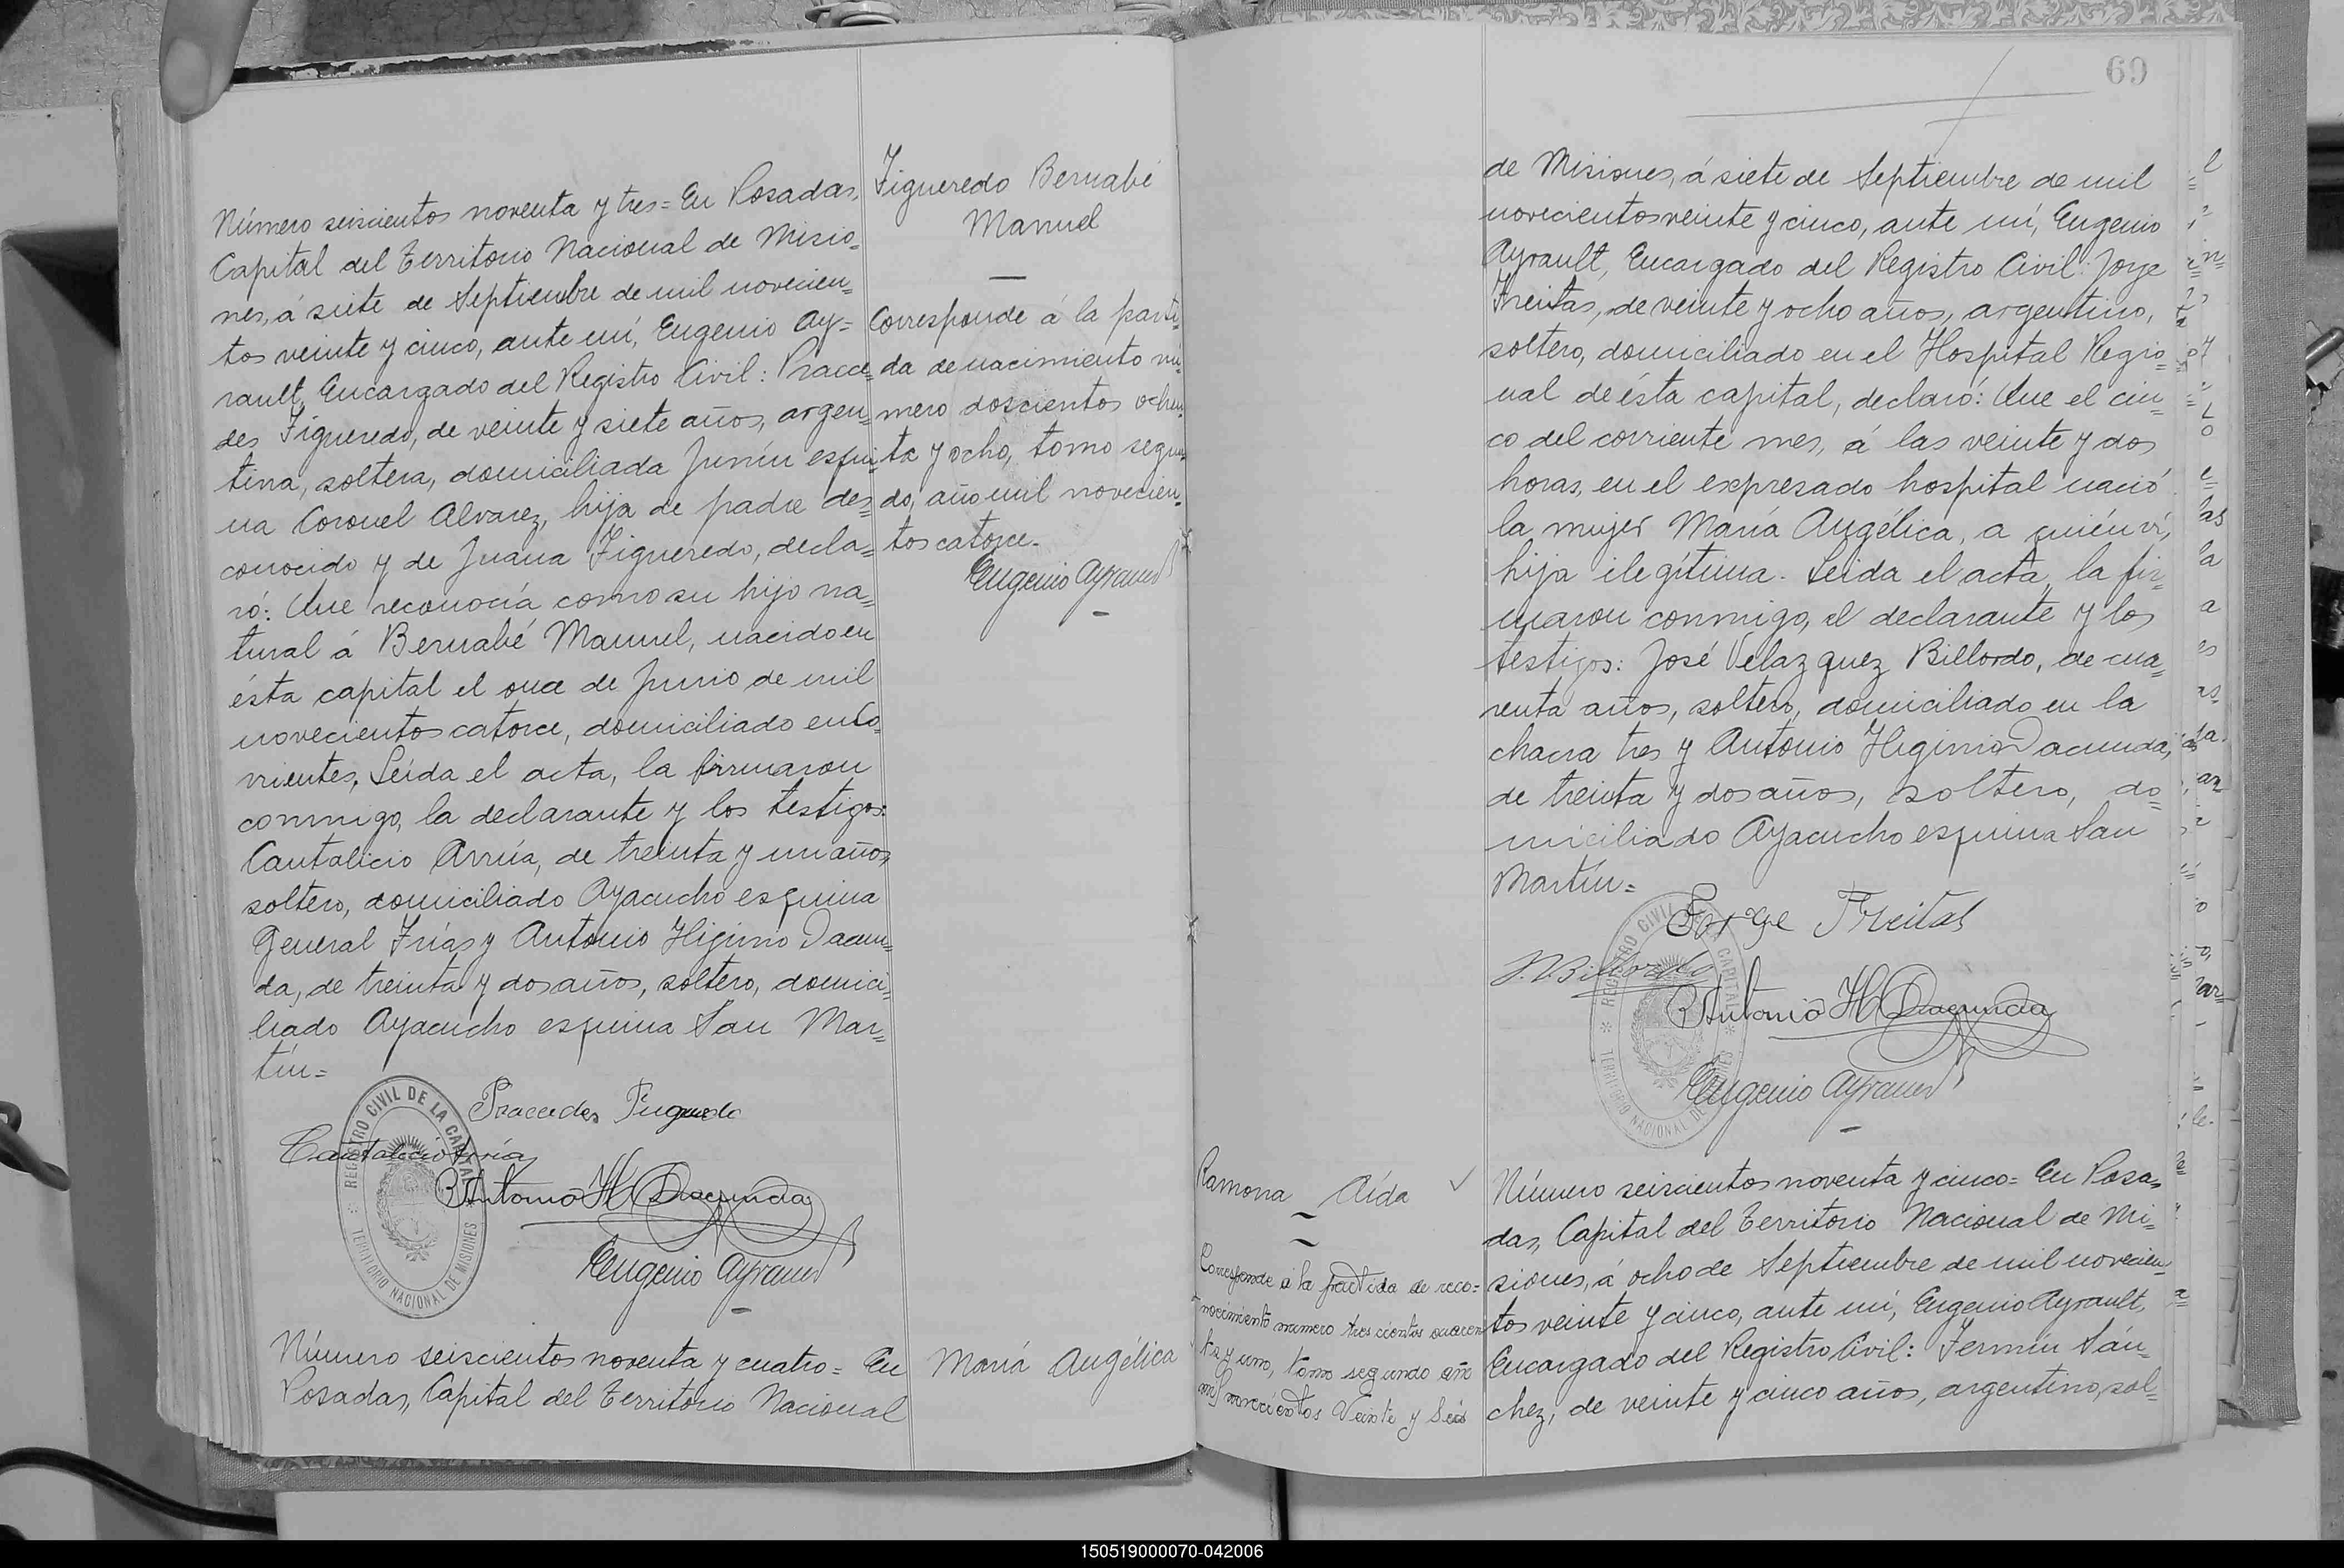 Número seiscientos noventa y tres = En Posadas,
Capital del Territorio Nacional de Misio=
nes, á siete de Septiembre de mil novecien=
tos veinte y cinco, ante mí, Eugenio Ay=
rault, Encargado del Registro Civil: Praxe=
des Figueredo, de veinte y siete años, argen=
tina, soltera, domiciliada Junín esqui=
na Coronel Alvarez, hija de padre des=
conocido y de Juana Figueredo, decla=
ró: Que reconocía como su hijo na=
tural á Bernabé Manuel, nacido en
ésta capital el once de Junio de mil
novecientos catorce, domiciliado en Co=
rrientes. Leída el acta, la firmaron
conmigo, la declarante y los testigos:
Cantalicio Arrúa, de treinta y un años,
soltero, domiciliado Ayacucho esquina
General Frías y Antonio Higinio Dacun=
da, de treinta y dos años, soltero, domici=
liado Ayacucho esquina San Mar=
tín =
Figueredo Bernabé
Manuel
Corresponde á la parti=
da de nacimiento nú=
mero doscientos ochen=
ta y ocho, tomo segun=
do, año mil novecien=
tos catorce.
Eugenio Ayrault
Praxedes Figueredo
Cantalicio Arrúa
Antonio H Dacunda
Eugenio Ayrault
REGISTRO CIVIL DE LA CAPITAL
TERRITORIO NACIONAL DE MISIONES
Número seiscientos noventa y cuatro = En
Posadas, Capital del Territorio Nacional
María Angélica
69
de Misiones, á siete de Septiembre de mil
novecientos veinte y cinco, ante mí, Eugenio
Ayrault, Encargado del Registro Civil: Jorge
Freitas, de veinte y ocho años, argentino,
soltero, domiciliado en el Hospital Regio=
nal de ésta capital, declaró: Que el cin=
co del corriente mes, á las veinte y dos
horas, en el expresado hospital nació
la mujer María Angélica, a quién ví,
hija ilegítima. Leida el acta, la fir=
maron conmigo, el declarante y los
testigos: José Velazquez Billordo, de cua=
renta años, soltero, domiciliado en la
chacra tres y Antonio Higinio Dacunda,
de treinta y dos años, soltero, do=
miciliado Ayacucho esquina San
Martín =
Jorge Freitas
J. V. Billordo
Antonio H Dacunda
Eugenio Ayrault
REGISTRO CIVIL DE LA CAPITAL
TERRITORIO NACIONAL DE MISIONES
Ramona Aída
Corresponde á la partida de reco=
nocimiento numero tres cientos cuaren
ta y uno, tomo segundo año
mil novecientos Veinte y Seis
Número seiscientos noventa y cinco = En Posa=
das, Capital del Territorio Nacional de Mi=
siones, á ocho de Septiembre de mil novecien=
tos veinte y cinco, ante mí, Eugenio Ayrault,
Encargado del Registro Civil: Fermín Sán=
chez, de veinte y cinco años, argentino, sol=
150519000070-042006